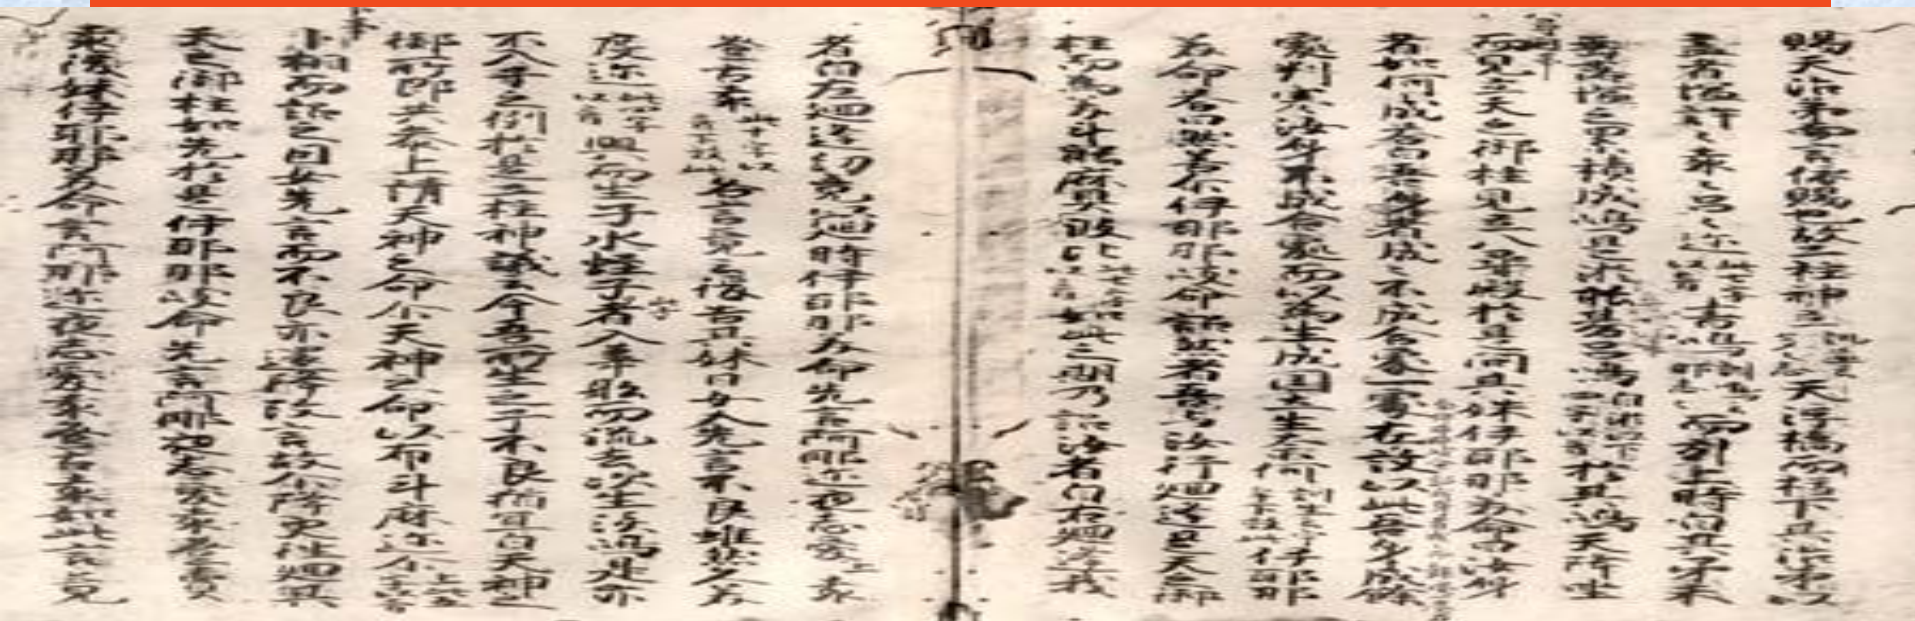 賜天沼矛而言依賜也故二柱神立天浮橋而指下其沼矛以
畫者塩許々袁々呂々迩此七字以音畫鳴訓鳴云那志々而引上時自其矛末
垂落塩之累積成嶋是淤能碁呂嶋自淤以下四字以音於其嶋天降坐
而見立天之御柱見立八尋殿於是問其妹伊耶那美命曰汝身
者如何成答曰吾身者成々不成合處一處在故以此吾身成餘
處刺塞汝身不成合處而以為生成国土生奈何訓生云宇牟下效此伊耶那
岐命答曰然善尓伊耶那岐命詔然者吾与汝行廻逢是天之御
柱而為美斗能麻具波比此七字以音如此之期乃詔汝者自右廻逢我
者自左廻逢約竟廻時伊耶那美命先言阿那迩夜志愛上袁
登古袁此十字以音下效此各言竟之後告其妹曰女人先言不良雖然久美
度迩此四字以音興而生子水蛭子此子者入葦船而流去次生淡嶋是亦
不入子之例於是二柱神議云今吾所生之子不良猶宜白天神之
御所即共参上請天神之命尓天神之命以布斗麻迩尓上此五字以音
卜相而詔之因女先言而不良亦還降改言故尓降更往廻其
天之御柱如先於是伊耶那岐命先言阿那迩夜志愛袁登賣
袁後妹伊耶那美命言阿那迩夜志愛袁登古袁如此言竟